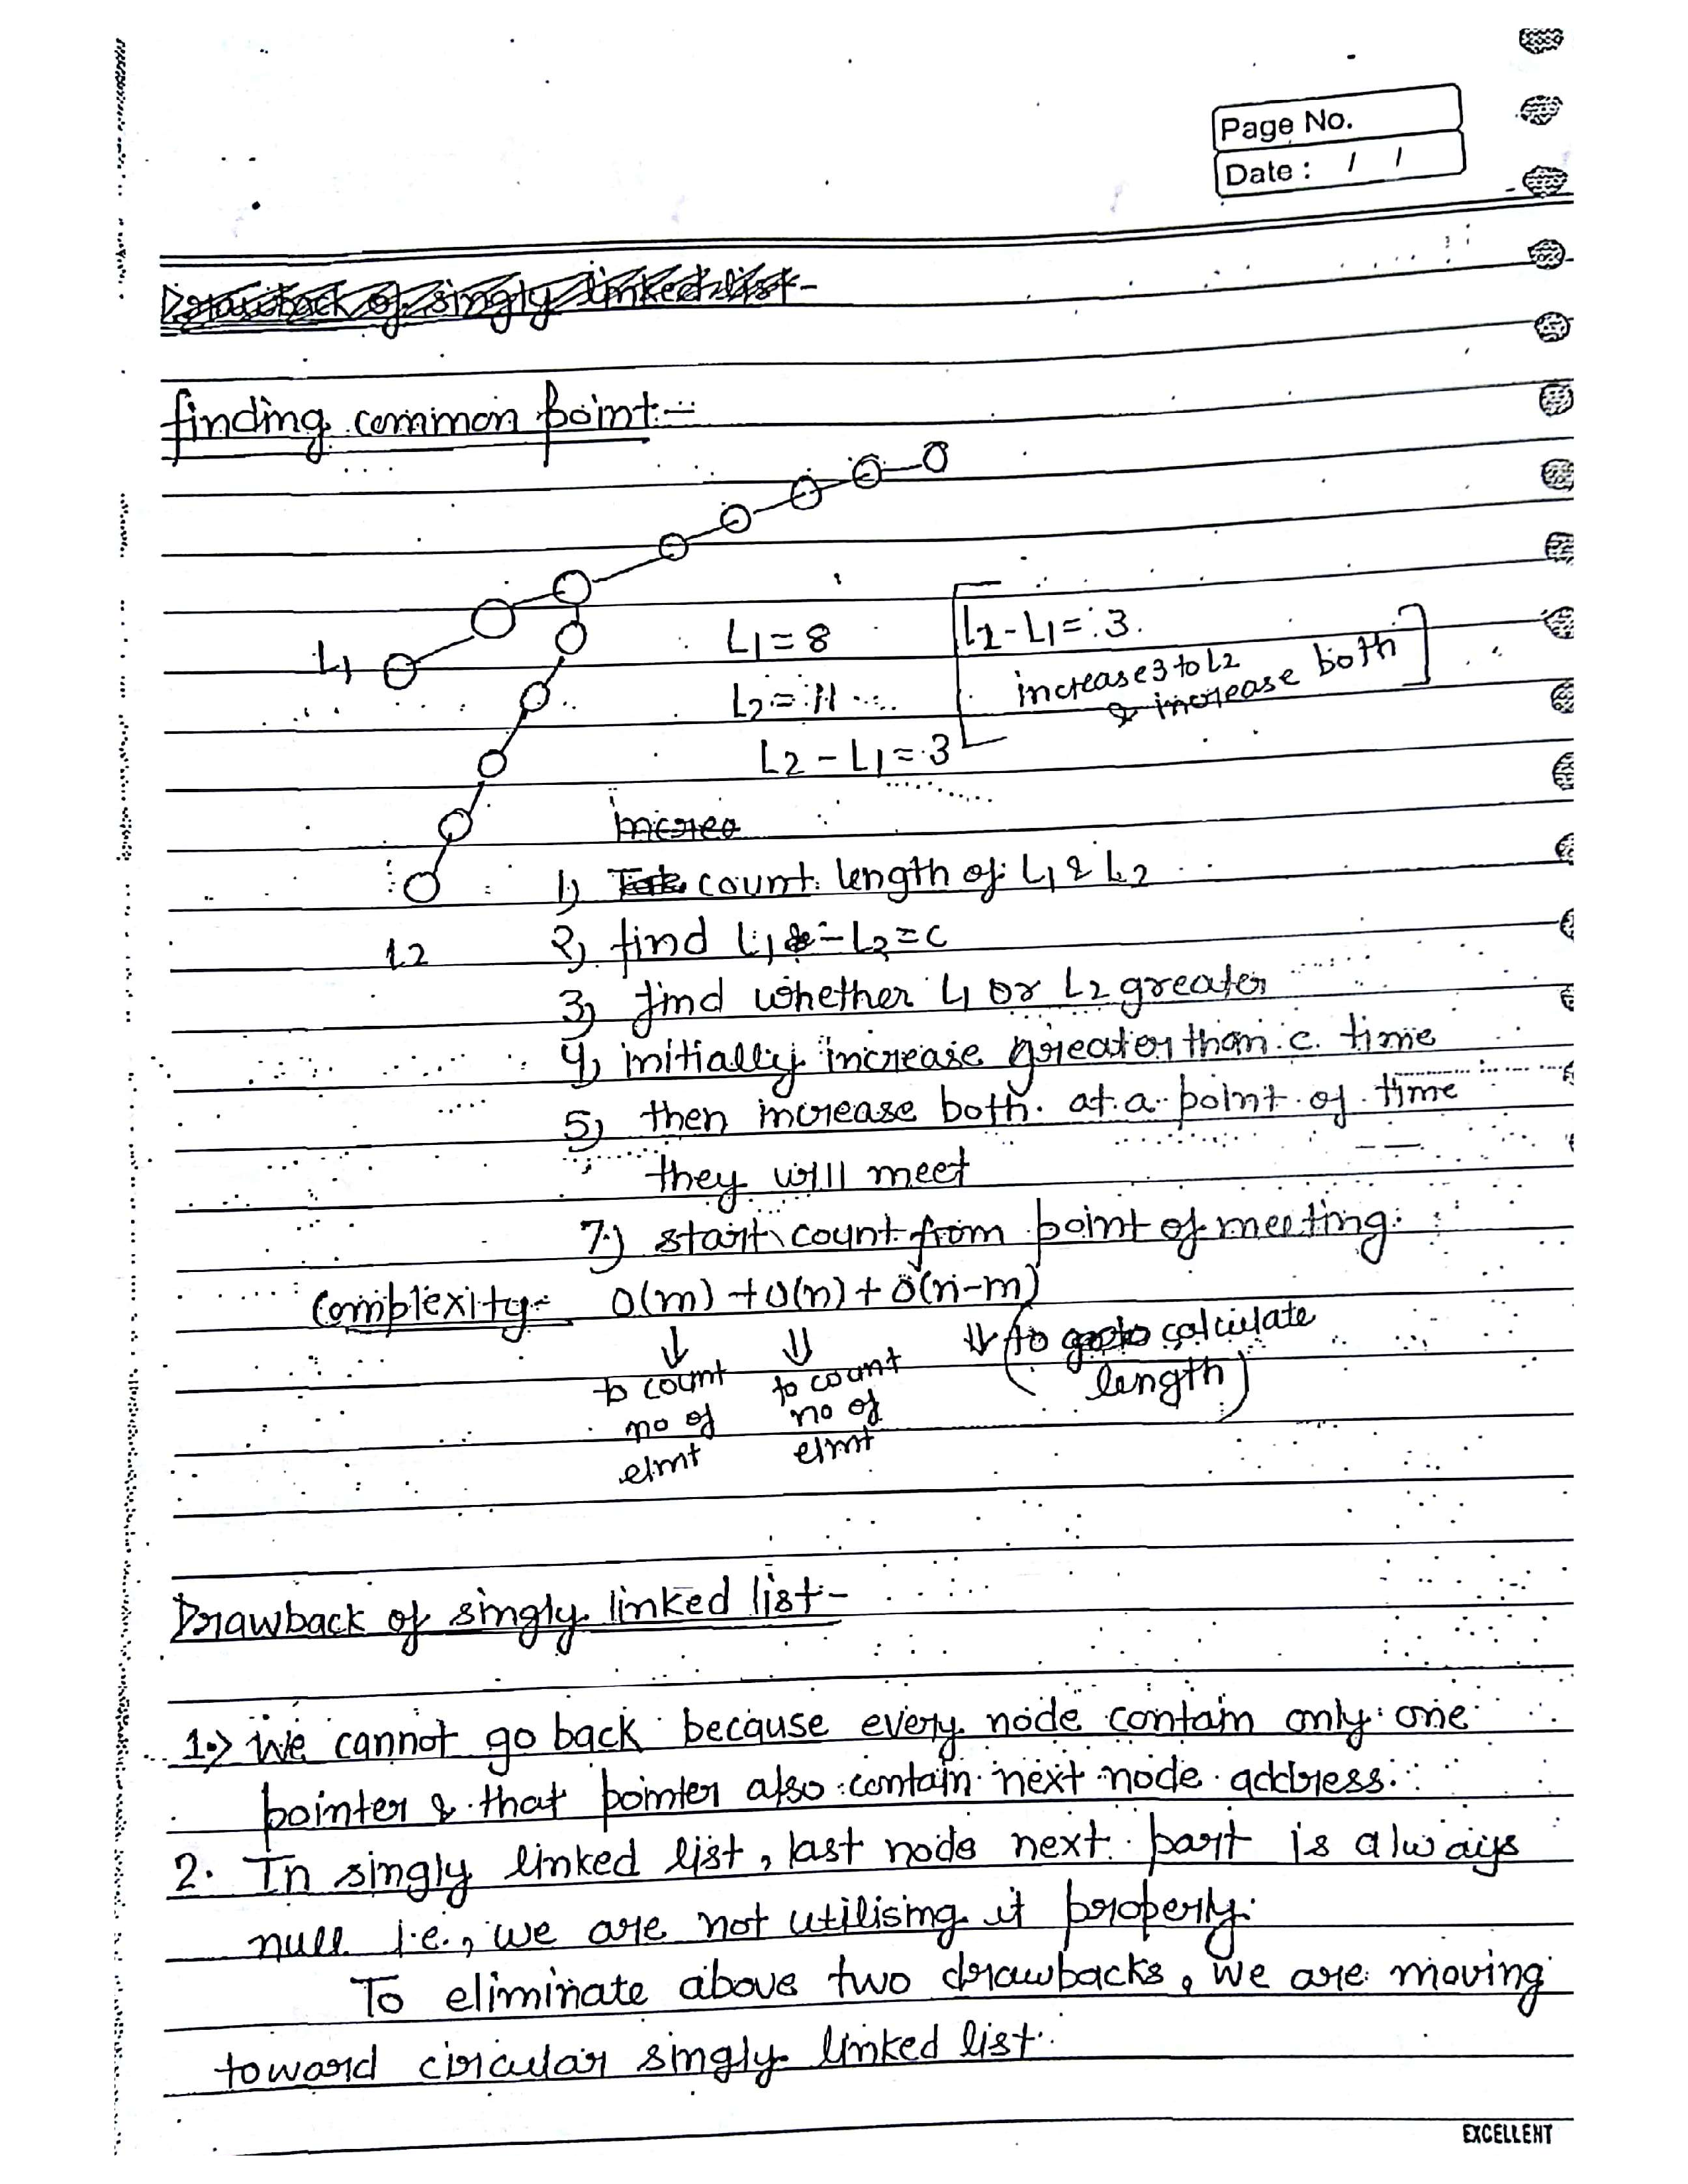 Page No.
Date : / /
Drawback of singly linked list-
finding common point:-
L1
L1 = 8
L2 = 11
L2 - L1 = 3
L2 - L1 = 3.
increase 3 to L2
& increase both
increa
1) count length of L1 & L2
L2
2) find L1 - L2 = c
3) find whether L1 or L2 greater
4) initially increase greater than c time
5) then increase both at a point of time
they will meet
7.) start count from point of meeting.
Complexity- O(m) + O(n) + O(n-m)
to count
no of
elmt
to count
no of
elmt
(to calculate
length)
Drawback of singly linked list-
1.> We cannot go back because every node contain only one
pointer & that pointer also contain next node address.
2. In singly linked list, last node next part is always
null i.e., we are not utilising it properly.
To eliminate above two drawbacks, we are moving
toward circular singly linked list.
EXCELLENT